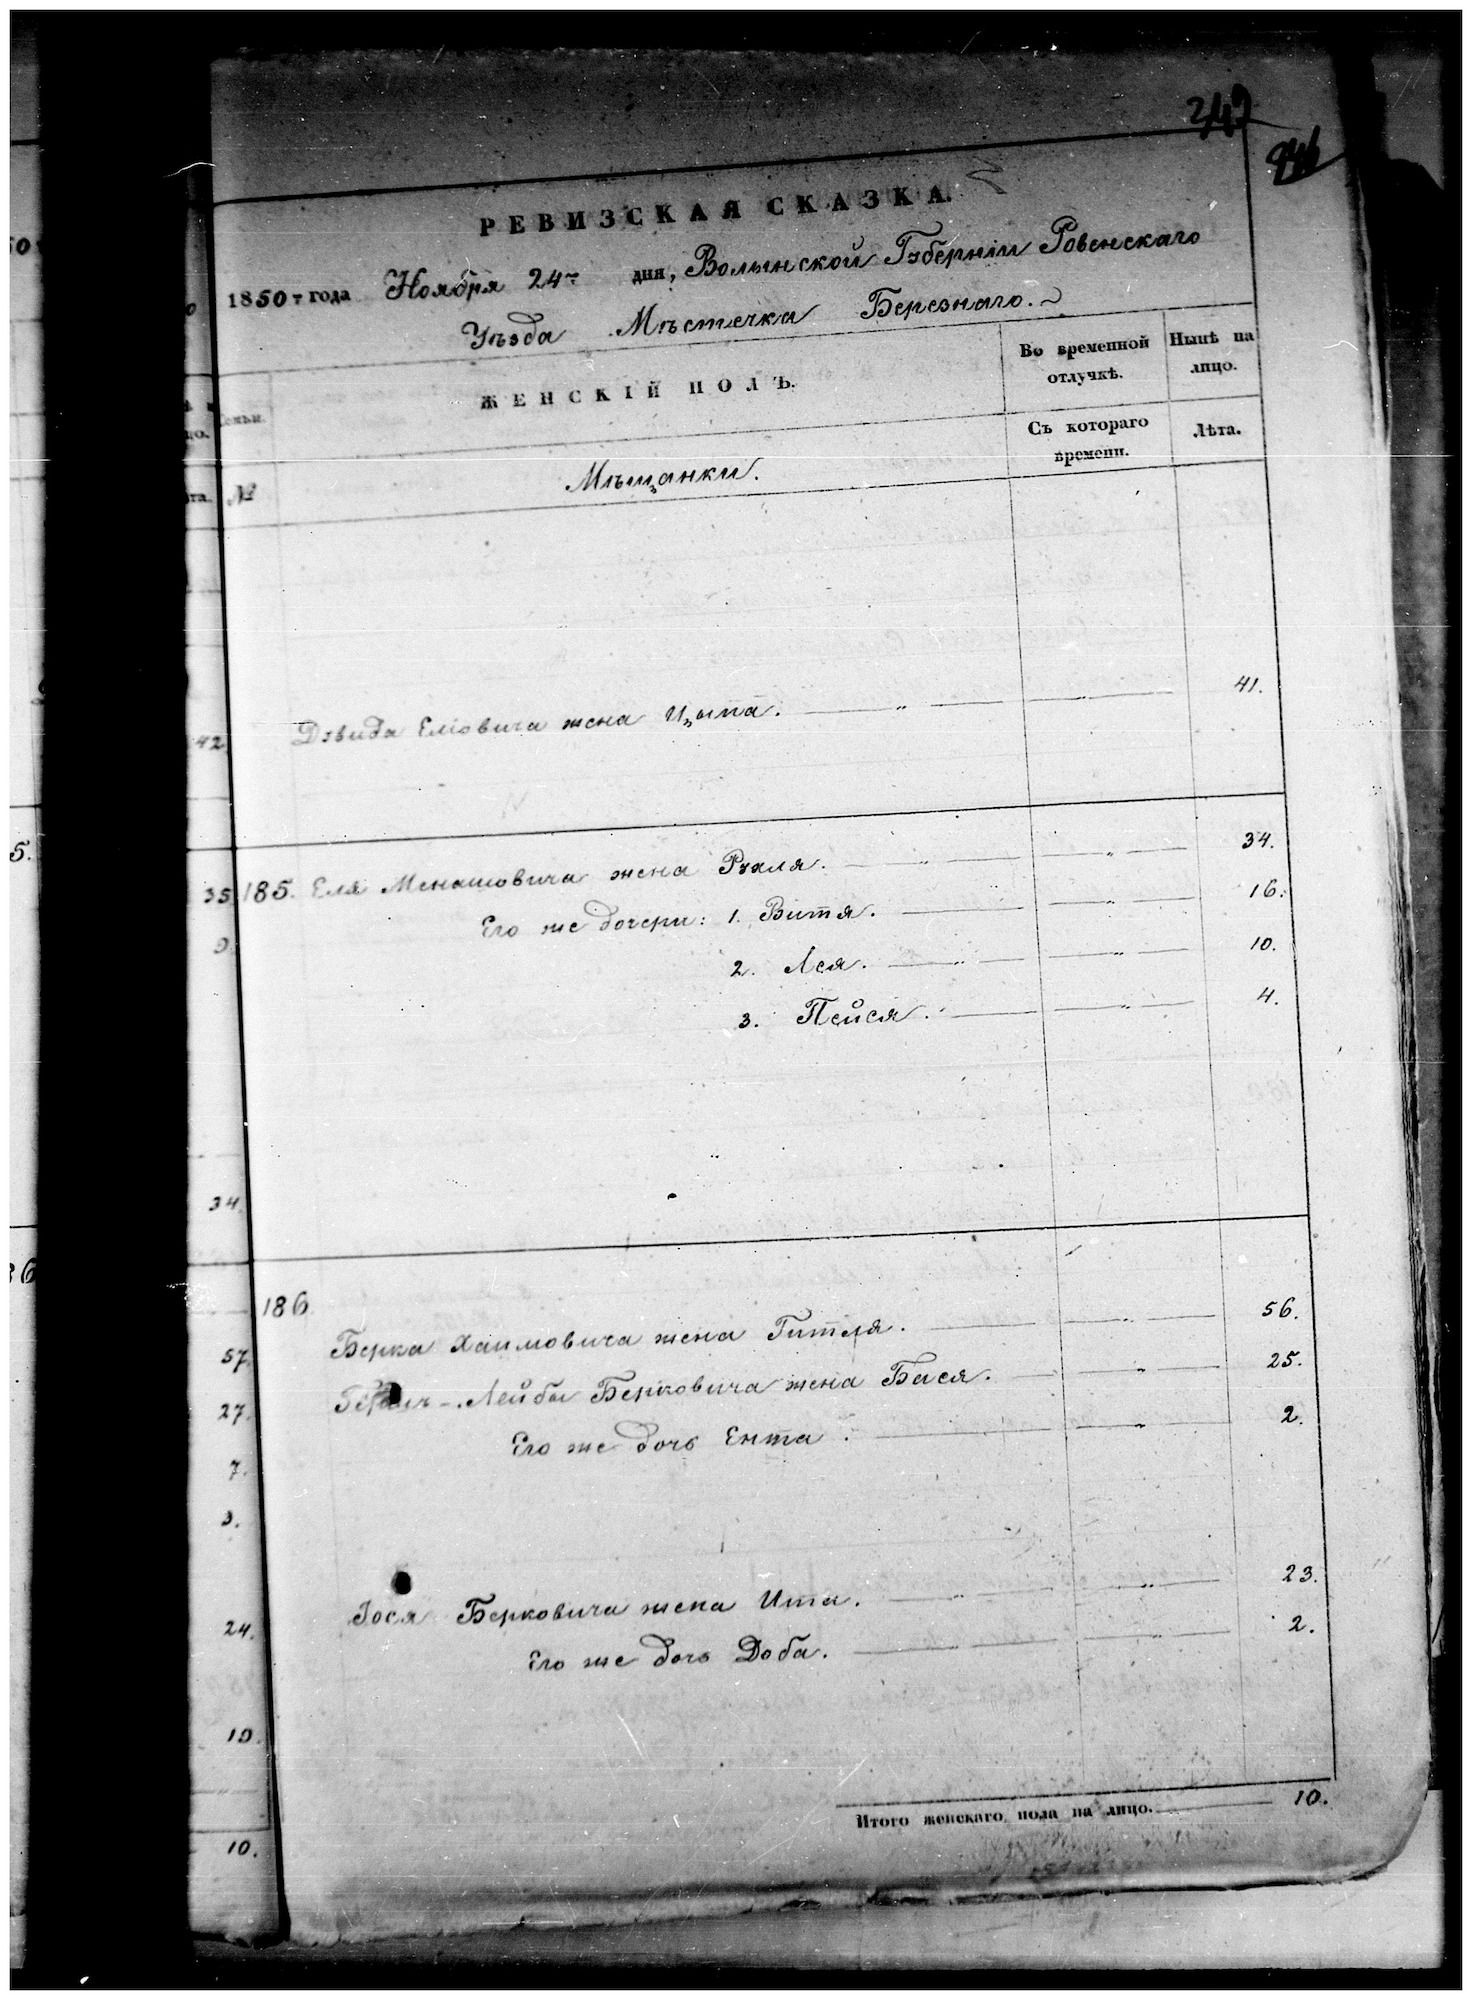 РЕВИЗСКАЯ СКАЗКА.
1850 г года Ноября 24 дня, Волынской Губерніи Ровенскаго
Уѣзда Мѣстечка Березнаго.
ЖЕНСКІЙ ПОЛЪ.
Во временной отлучкѣ.
Нынѣ на лицо.
Семьи.
Съ котораго времени.
Лѣта.
№ Мѣщанки.
42 Дэвида Еліовича жена Цыпа. 41.
35 185. Еля Менашовича жена Рухля. 34.
Его же дочери: 1. Витя. 16.
2. Лея. 10.
3. Пейся. 4.
34.
186
57. Берка Хаимовича жена Гитля. 56.
27. Лейбы Берковича жена Бася. 25.
Его же дочь Ента. 2.
7.
3.
24. Іося Берковича жена Ита. 23.
Его же дочь Доба. 2.
10.
Итого женскаго пола на лицо. 10.
10.